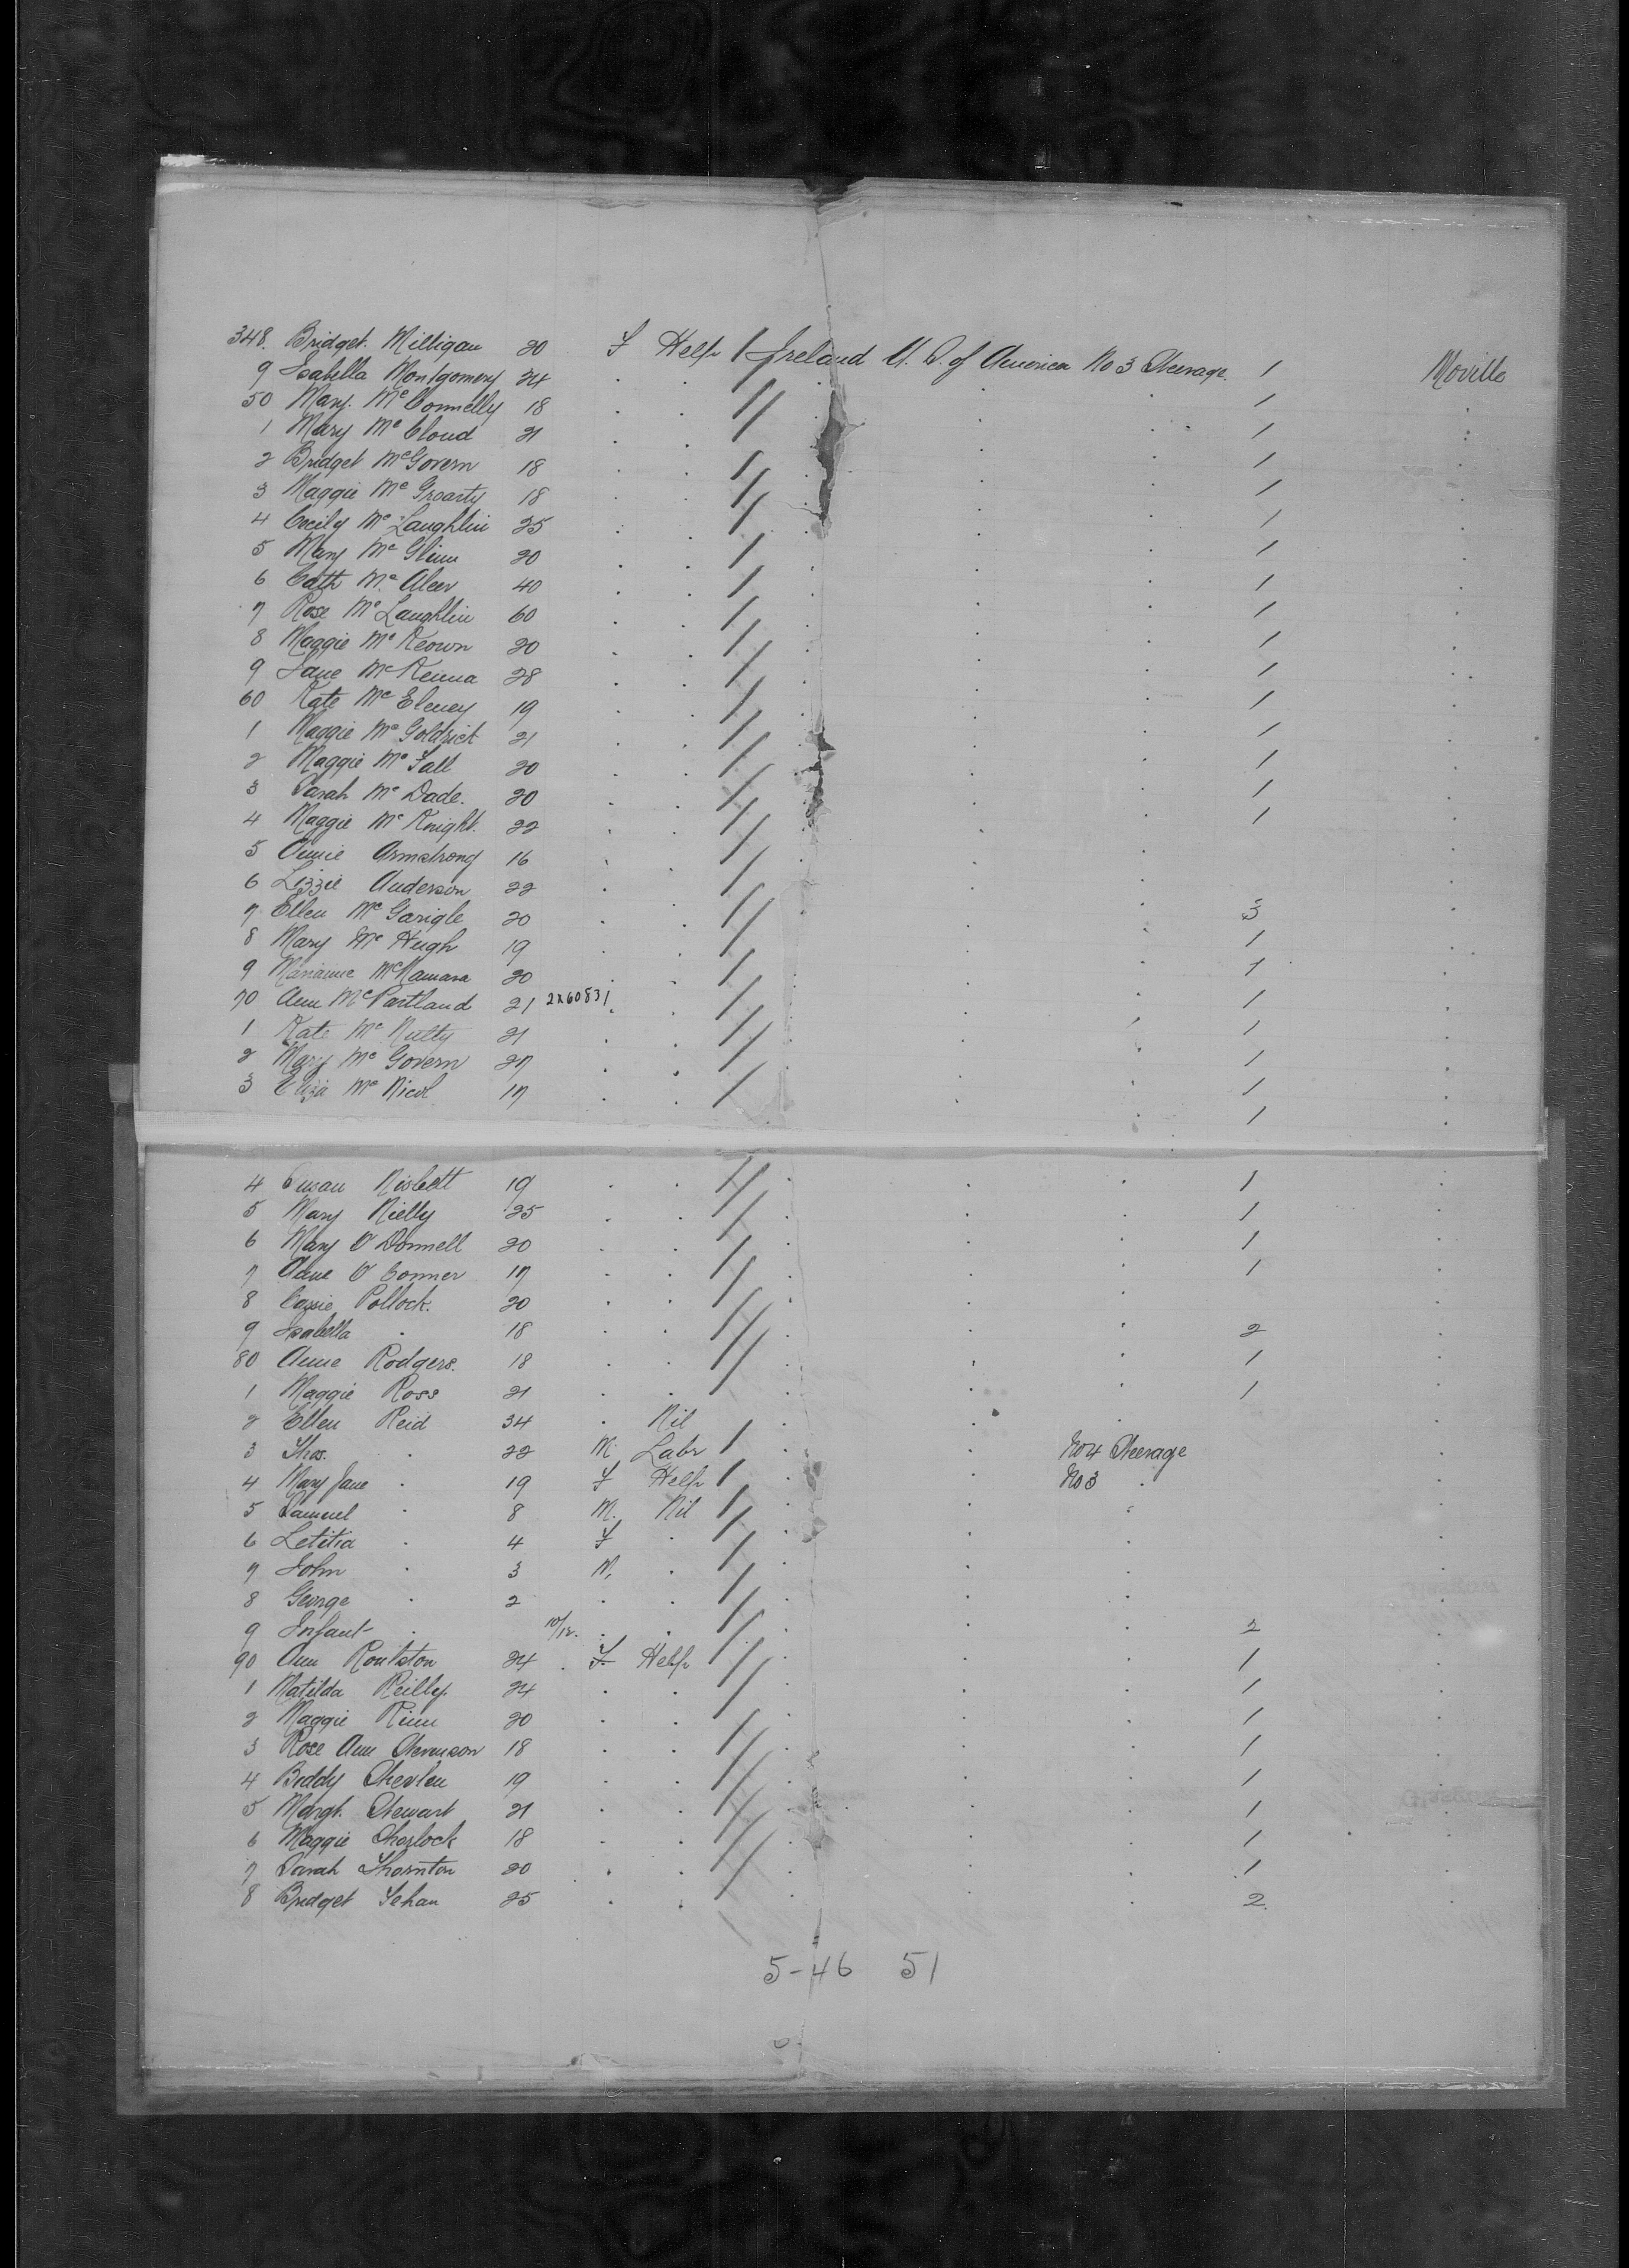 348. Bridget. Milligan 20 F Help / Ireland U. S. of America No 3 Steerage. 1 Moville
9 Isabella Montgomery 24 . . / . . . 1 .
50 Mary. McConnelly 18 . . / . . . 1 .
1 Mary McCloud 21 . . / . . . 1 .
2 Bridget McGovern 18 . . / . . . 1 .
3 Maggie McGroarty 18 . . / . . . 1 .
4 Cecily McLaughlin 25 . . / . . . 1 .
5 Mary McGlinn 20 . . / . . . 1 .
6 Cath McAleer 40 . . / . . . 1 .
7 Rose McLaughlin 60 . . / . . . 1 .
8 Maggie McKeown 20 . . / . . . 1 .
9 Jane McKenna 28 . . / . . . 1 .
60 Kate McEleney 19 . . / . . . 1 .
1 Maggie McGoldrick 21 . . / . . . 1 .
2 Maggie McFall 20 . . / . . . 1 .
3 Sarah McDade. 20 . . / . . . 1 .
4 Maggie McKnight. 22 . . / . . . .
5 Annie Armstrong 16 . . / . . . .
6 Lizzie Anderson 22 . . / . . . 3 .
7 Ellen McGarigle 20 . . / . . . 1 .
8 Mary McHugh 19 . . / . . . 1 .
9 McNamara 20 . . / . . . 1 .
70 Ann McPartland 21 2X60831 . . / . . . 1 .
1 Kate McNulty 21 . . / . . . 1 .
2 Mary McGovern 27 . . / . . . 1 .
3 Eliza McNicol 17 . . / . . . 1 .
4 Susan Nisbett 19 . . / . . . 1 .
5 Mary Nielly 25 . . / . . . 1 .
6 Mary O'Donnell 20 . . / . . . 1 .
7 O'Conner 17 . . / . . . 1 .
8 Cassie Pollock. 20 . . / . . . .
9 Isabella . 18 . . / . . . 2 .
80 Annie Rodgers. 18 . . / . . . 1 .
1 Maggie Ross 21 . . / . . . 1 .
2 Ellen Reid 34 . Nil / . . . .
3 Thos. . 22 M. Labr / . . No 4 Steerage .
4 Mary Jane . 19 F Help / . . No 3 . .
5 Samuel . 8 M. Nil / . . . .
6 Letitia . 4 F . / . . . .
7 John . 3 M. . / . . . .
8 George . 2 . . / . . . .
9 Infant . 10/12. . . / . . . 2 .
90 Ann Roulston 24 . F Help / . . . 1 .
1 Matilda Reilly. 24 . . / . . . 1 .
2 Maggie Rinn 20 . . / . . . 1 .
3 Rose Ann Stevenson 18 . . / . . . 1 .
4 Biddy 19 . . / . . . 1 .
5 Margt. Stewart 21 . . / . . . 1 .
6 Maggie Sherlock 18 . . / . . . 1 .
7 Sarah Thornton 20 . . / . . . 1 .
8 Bridget 25 . . / . . . 2. .
5-46 51